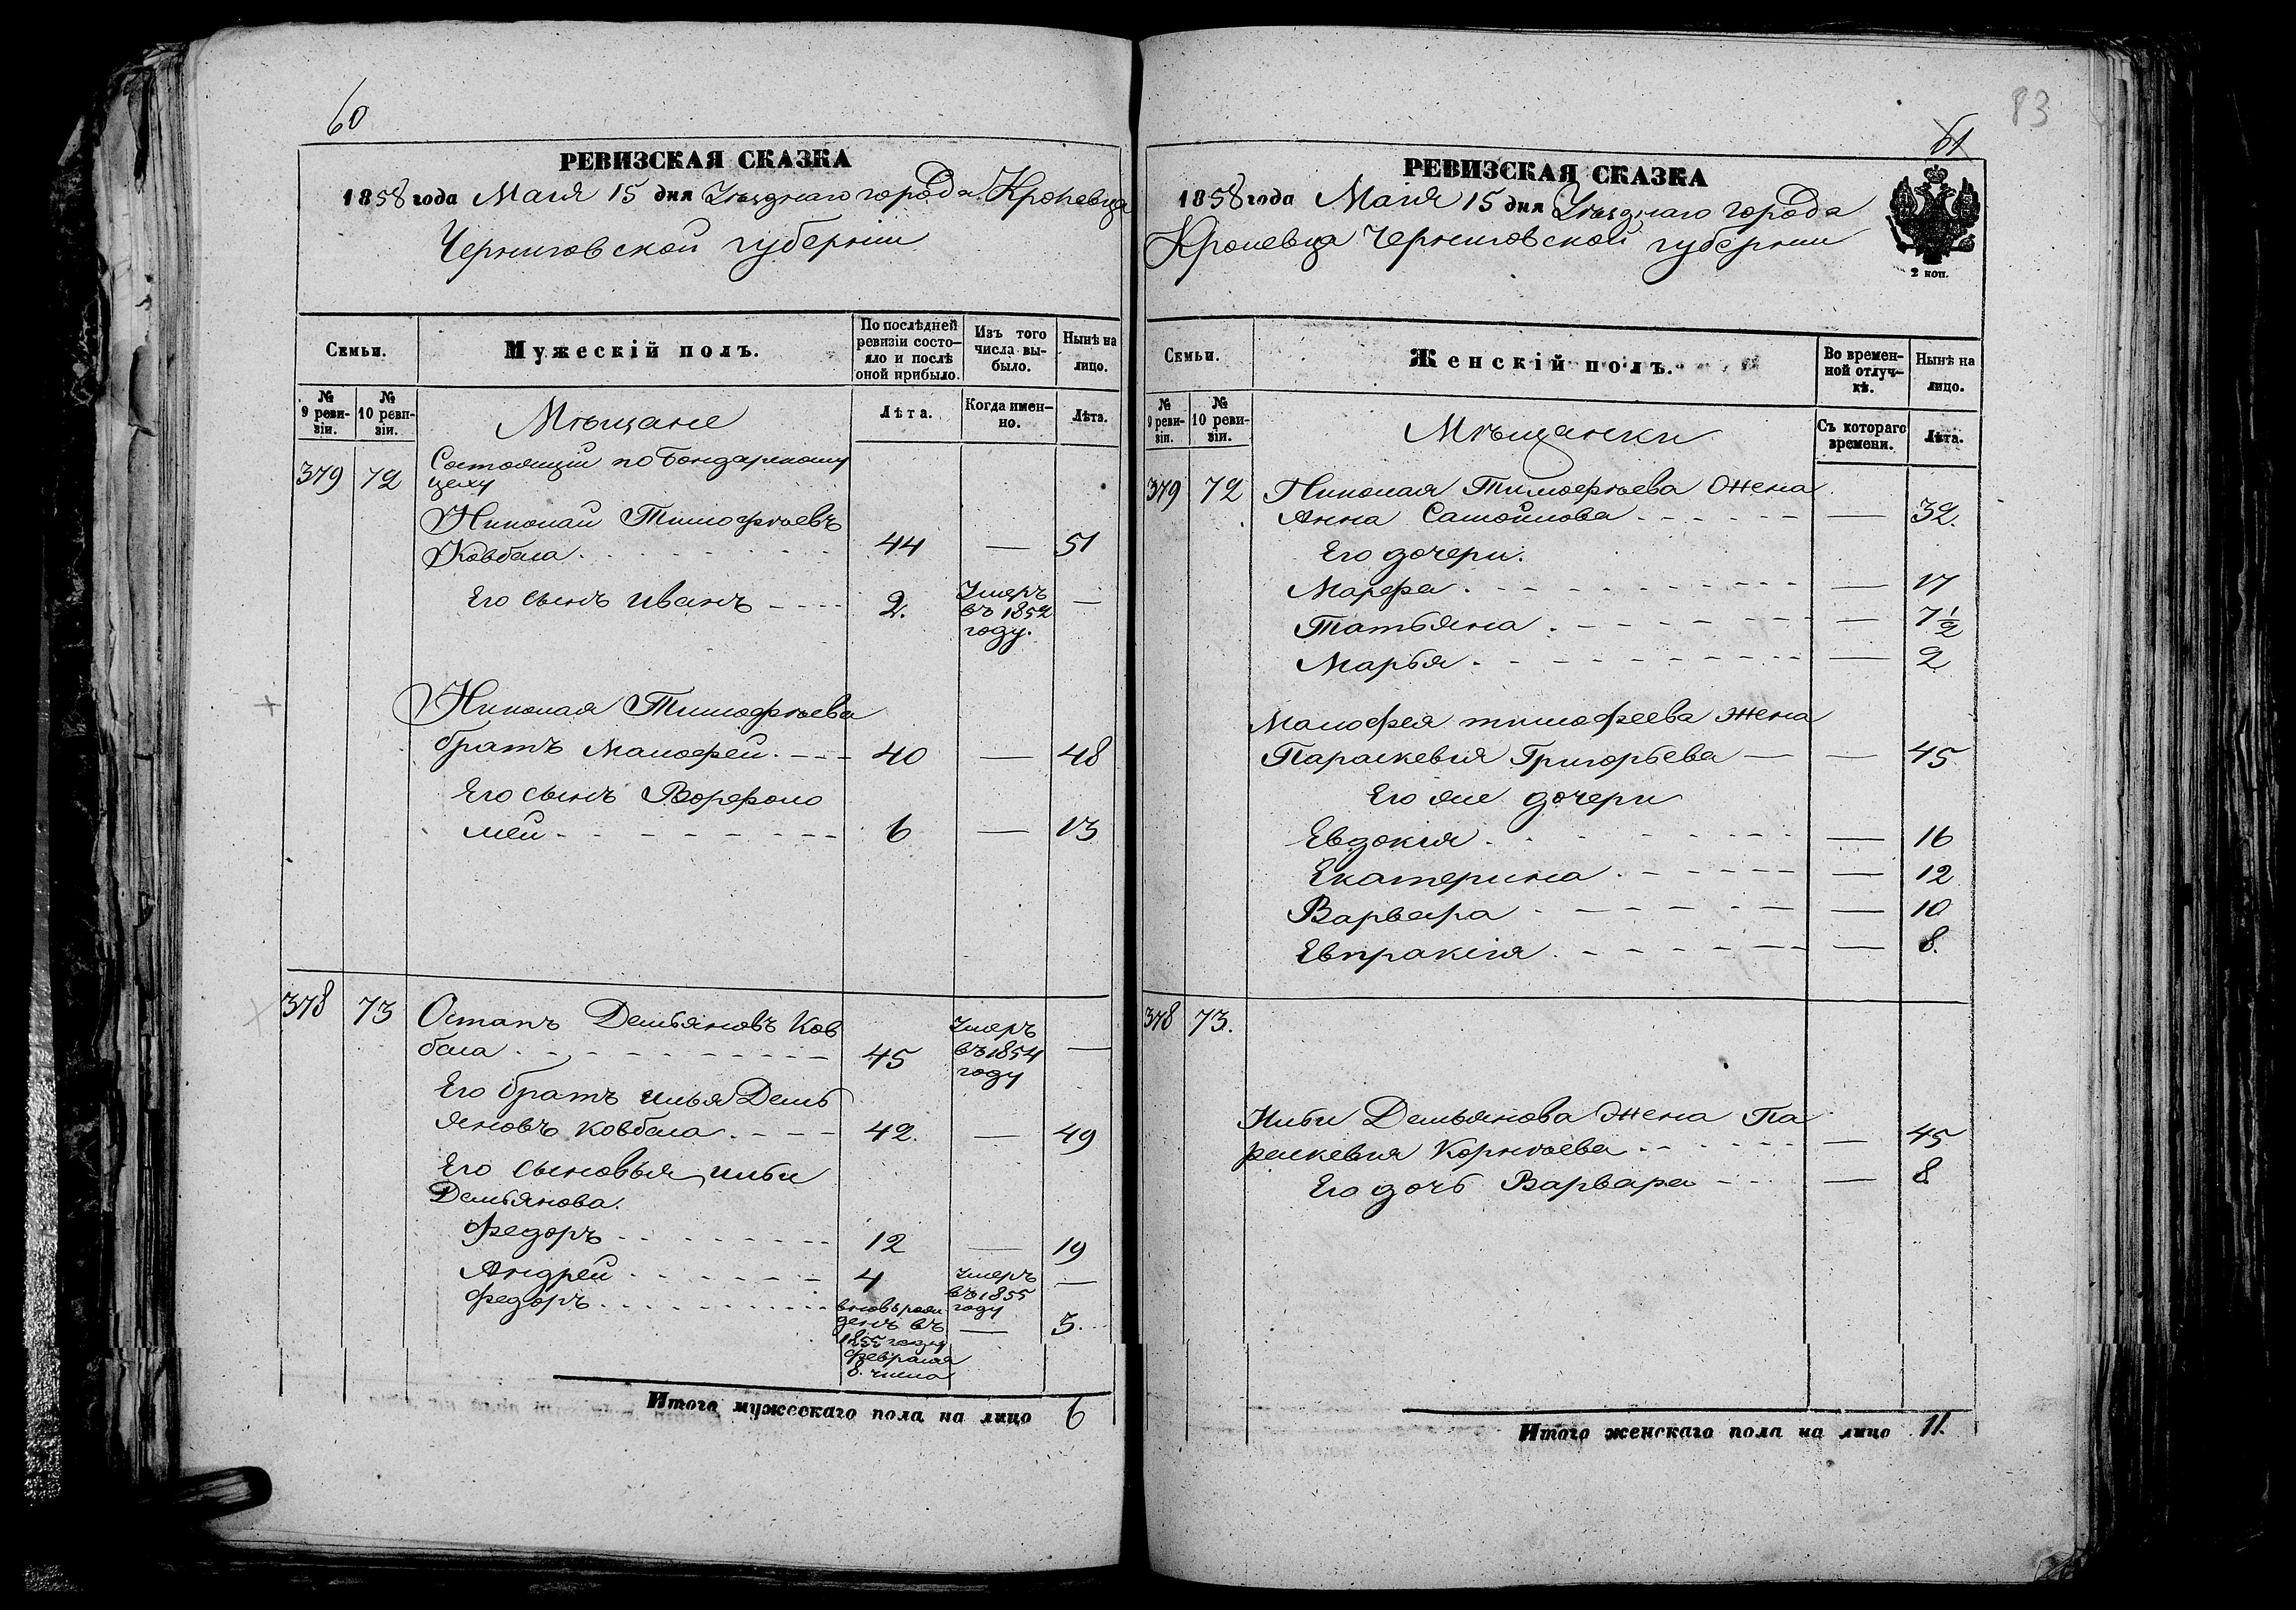 60
РЕВИЗСКАЯ СКАЗКА
1858 года Маія 15 дня Уѣзднаго города Кролевца
Черниговской губерніи
Семьи.
Мужескій полъ.
По послѣдней ревизіи состояло и послѣ оной прибыло.
Изъ того числа выбыло.
Нынѣ на лицо.
№ 9 ревизіи.
№ 10 ревизіи.
Мѣщане
Лѣта.
Когда именно.
Лѣта.
379 72 Состоящіи по Бондарскому
цеху
Николай Тимофѣевъ
Ковбаса 44 — 51
Его сынъ Иванъ 2. Умеръ въ 1852 году. —
Николая Тимофѣева
братъ Малофей 40 — 48
Его сынъ Ворфоло
мей 6 — 13
378 73 Остапъ Демьяновъ Ков
баса 45 Умеръ въ 1854 году —
Его братъ Илья Демь
яновъ Ковбаса 42. — 49
Его сыновья Ильи
Демьянова.
Федоръ 12 — 19
Андрей 4 Умеръ въ 1855 году —
Федоръ вновь рожденъ въ 1855 году февраля 8. числа — 3.
Итого мужескаго пола на лицо 6
83
61
РЕВИЗСКАЯ СКАЗКА
1858 года Маія 15 дня Уѣзднаго города
Кролевца Черниговской губерніи
2 коп.
Семьи.
Женскій полъ.
Во временной отлучкѣ.
Нынѣ на лицо.
№ 9 ревизіи.
№ 10 ревизіи.
Мѣщанки
Съ котораго времени.
Лѣта.
379 72 Николая Тимофѣева Жена
Анна Самойлова — 32.
Его дочери.
Марфа — 17
Татьяна — 7½
Марья — 2
Малофея Тимофеева Жена
Параскевія Григорьева — 45
Его же дочери
Евдокія — 16
Екатерина — 12
Варвара — 10
Евпраксія — 8.
378 73.
Ильи Демьянова Жена Па
раскевія Корнѣева — 45
Его дочь Варвара — 8.
Итого женскаго пола на лицо 11.